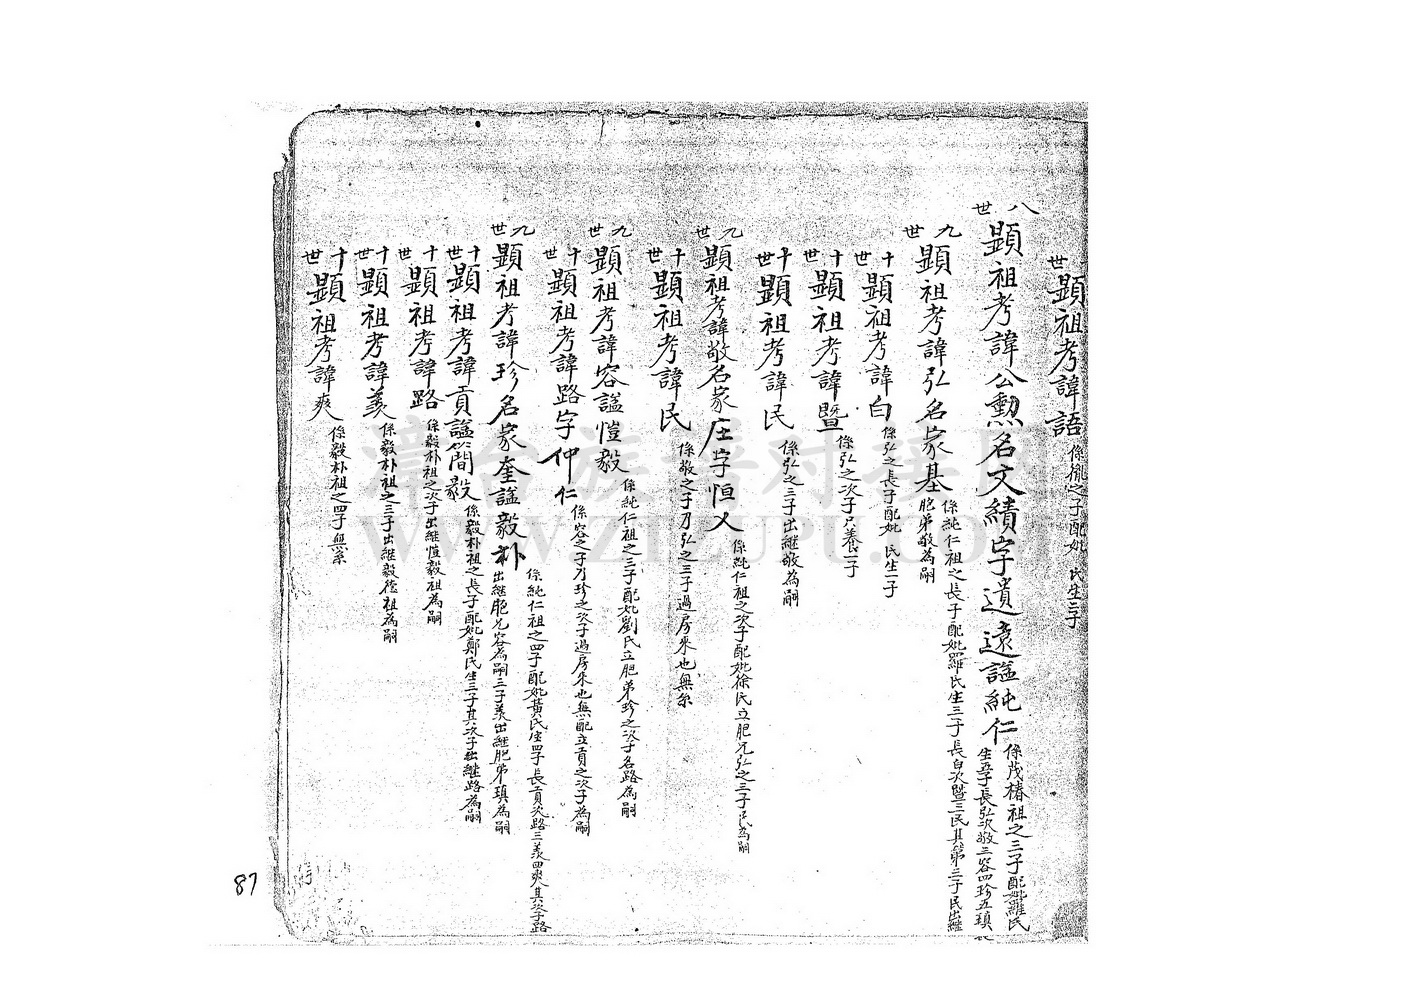 世顯祖考諱語 係衞之子配妣 氏生二子
八世顯祖考諱公勲名文績字遺遠謚純仁 係茂椿祖之三子配妣羅氏
生五子長弘次敬三容四珍五瑱
九世顯祖考諱弘名家基 係純仁祖之長子配妣羅氏生三子長白次暨三民其第三子民出繼
胞弟敬為嗣
十世顯祖考諱白 係弘之長子配妣 氏生一子
十世顯祖考諱暨 係弘之次子只養一子
十世顯祖考諱民 係弘之三子出継敬為嗣
九世顯祖考諱敬名家庄字恒人 係純仁祖之次子配妣徐氏立胞兄弘之三子民為嗣
十世顯祖考諱民 係敬之子乃弘之三子過房來也無糸
九世顯祖考諱容謚愷毅 係純仁祖之三子配妣劉氏立胞弟珍之次子名路為嗣
十世顯祖考諱路字仲仁 係容之子乃珍之次子過房來也無配立貢之次子為嗣
九世顯祖考諱珍名家奎謚毅朴 係純仁祖之四子配妣黃氏生四子長貢次路三羙四爽其次子路
出継胞兄容為嗣三子羙出継胞弟瑱為嗣
十世顯祖考諱貢謚簡毅 係毅朴祖之長子配妣鄭氏生三子其次子出継路為嗣
十世顯祖考諱路 係毅朴祖之次子出継愷毅祖為嗣
十世顯祖考諱羙 係毅朴祖之三子出継毅德祖為嗣
十世顯祖考諱爽 係毅朴祖之四子無糸
87
WWW.ZTZUPU.COM